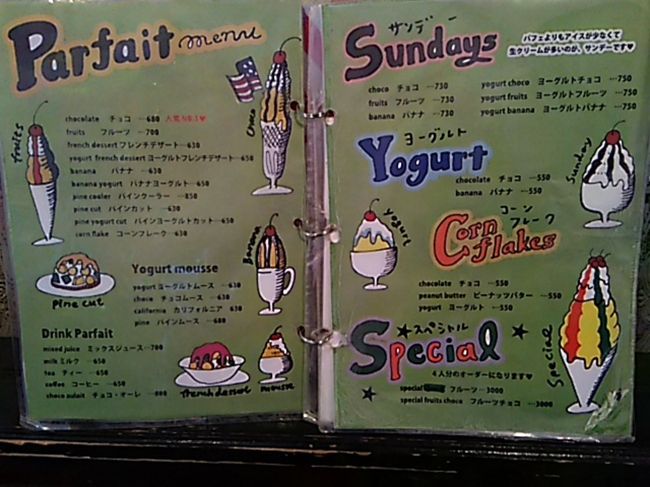 Parfait menu
chocolate チョコ …680 人気No.1♥
fruits フルーツ …700
french dessert フレンチデザート …630
yogurt french dessert ヨーグルトフレンチデザート …650
banana バナナ …630
banana yogurt バナナヨーグルト …650
pine cooler パインクーラー …850
pine cut パインカット …630
pine yogurt cut パインヨーグルトカット …650
corn flake コーンフレーク …630
fruits
choco
Banana
pine cut
Yogurt mousse
yogurt ヨーグルトムース …630
choco チョコムース …630
california カリフォルニア 630
pine パインムース …680
Drink Parfait
mixed juice ミックスジュース …700
milk ミルク …650
tea ティー …650
coffee コーヒー …650
choco aulait チョコ・オーレ …800
french dessert
mousse
サンデー
Sundays
パフェよりもアイスが少なくて
生クリームが多いのが、サンデーです♥
choco チョコ …730
fruits フルーツ …730
banana バナナ …730
yogurt choco ヨーグルトチョコ …750
yogurt fruits ヨーグルトフルーツ …750
yogurt banana ヨーグルトバナナ …750
Sunday
ヨーグルト
Yogurt
chocolate チョコ …550
banana バナナ …550
yogurt
コーン
フレーク
Corn
flakes
chocolate チョコ …550
peanut butter ピーナッツバター …550
yogurt ヨーグルト …550
★スペシャル★
Special
4人分のオーダーになります♥
special フルーツ …3000
special fruits choco フルーツチョコ …3000
Special